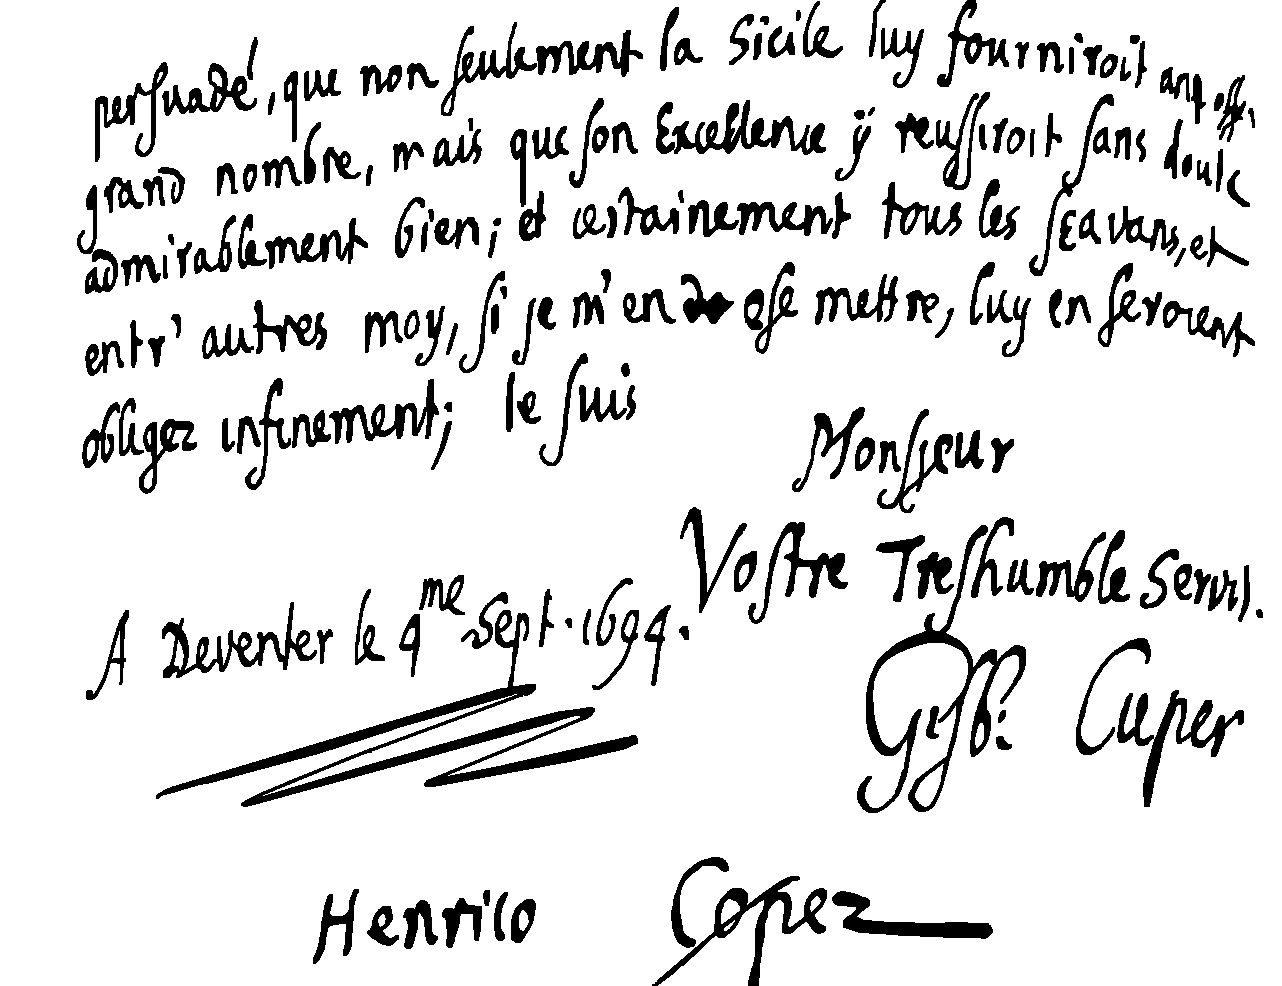 persuadé, que non seulement la Sicile luy fourniroit
grand nombre, mais que son Excellence ÿ reussiroit sans doute
admirablement bien; et certainement tous les sçavans, et
entr' autres moy, si je m'en ose mettre, luy en seroient
obligez infinement; Je suis
Monsieur
Vostre Treshumble Servit.
A Deventer le 9me Sept. 1694.
Gisb: Cuper
Henrico Copez